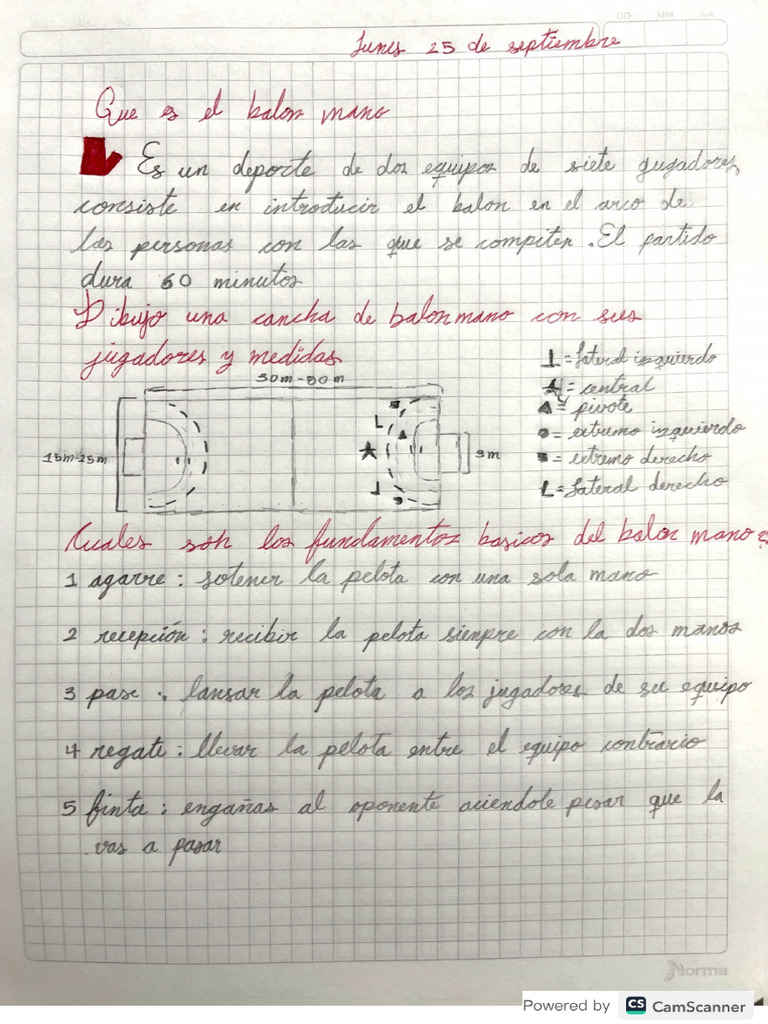 DD MM AA
Lunes 25 de septiembre
Que es el balon mano
Es un deporte de dos equipos de siete gugadores,
consiste en introducir el balon en el arco de
las personas con las que se compiten. El partido
dura 60 minutos
Dibujo una cancha de balonmano con sus
jugadores y medidas
⊥ = lateral izquierdo
50m-80m
★ = central
▲ = pivote
● = extremo izquierdo
15m-25m
3m
■ = extremo derecho
L = lateral derecho
Cuales son los fundamentos basicos del balon mano?
1 agarre: sotener la pelota con una sola mano
2 recepción: recibir la pelota siempre con la dos manos
3 pase: lansar la pelota a los jugadores de su equipo
4 regate: llevar la pelota entre el equipo contrario
5 finta: engañas al oponente aciendole pesar que la
vas a pasar
Norma
Powered by CS CamScanner